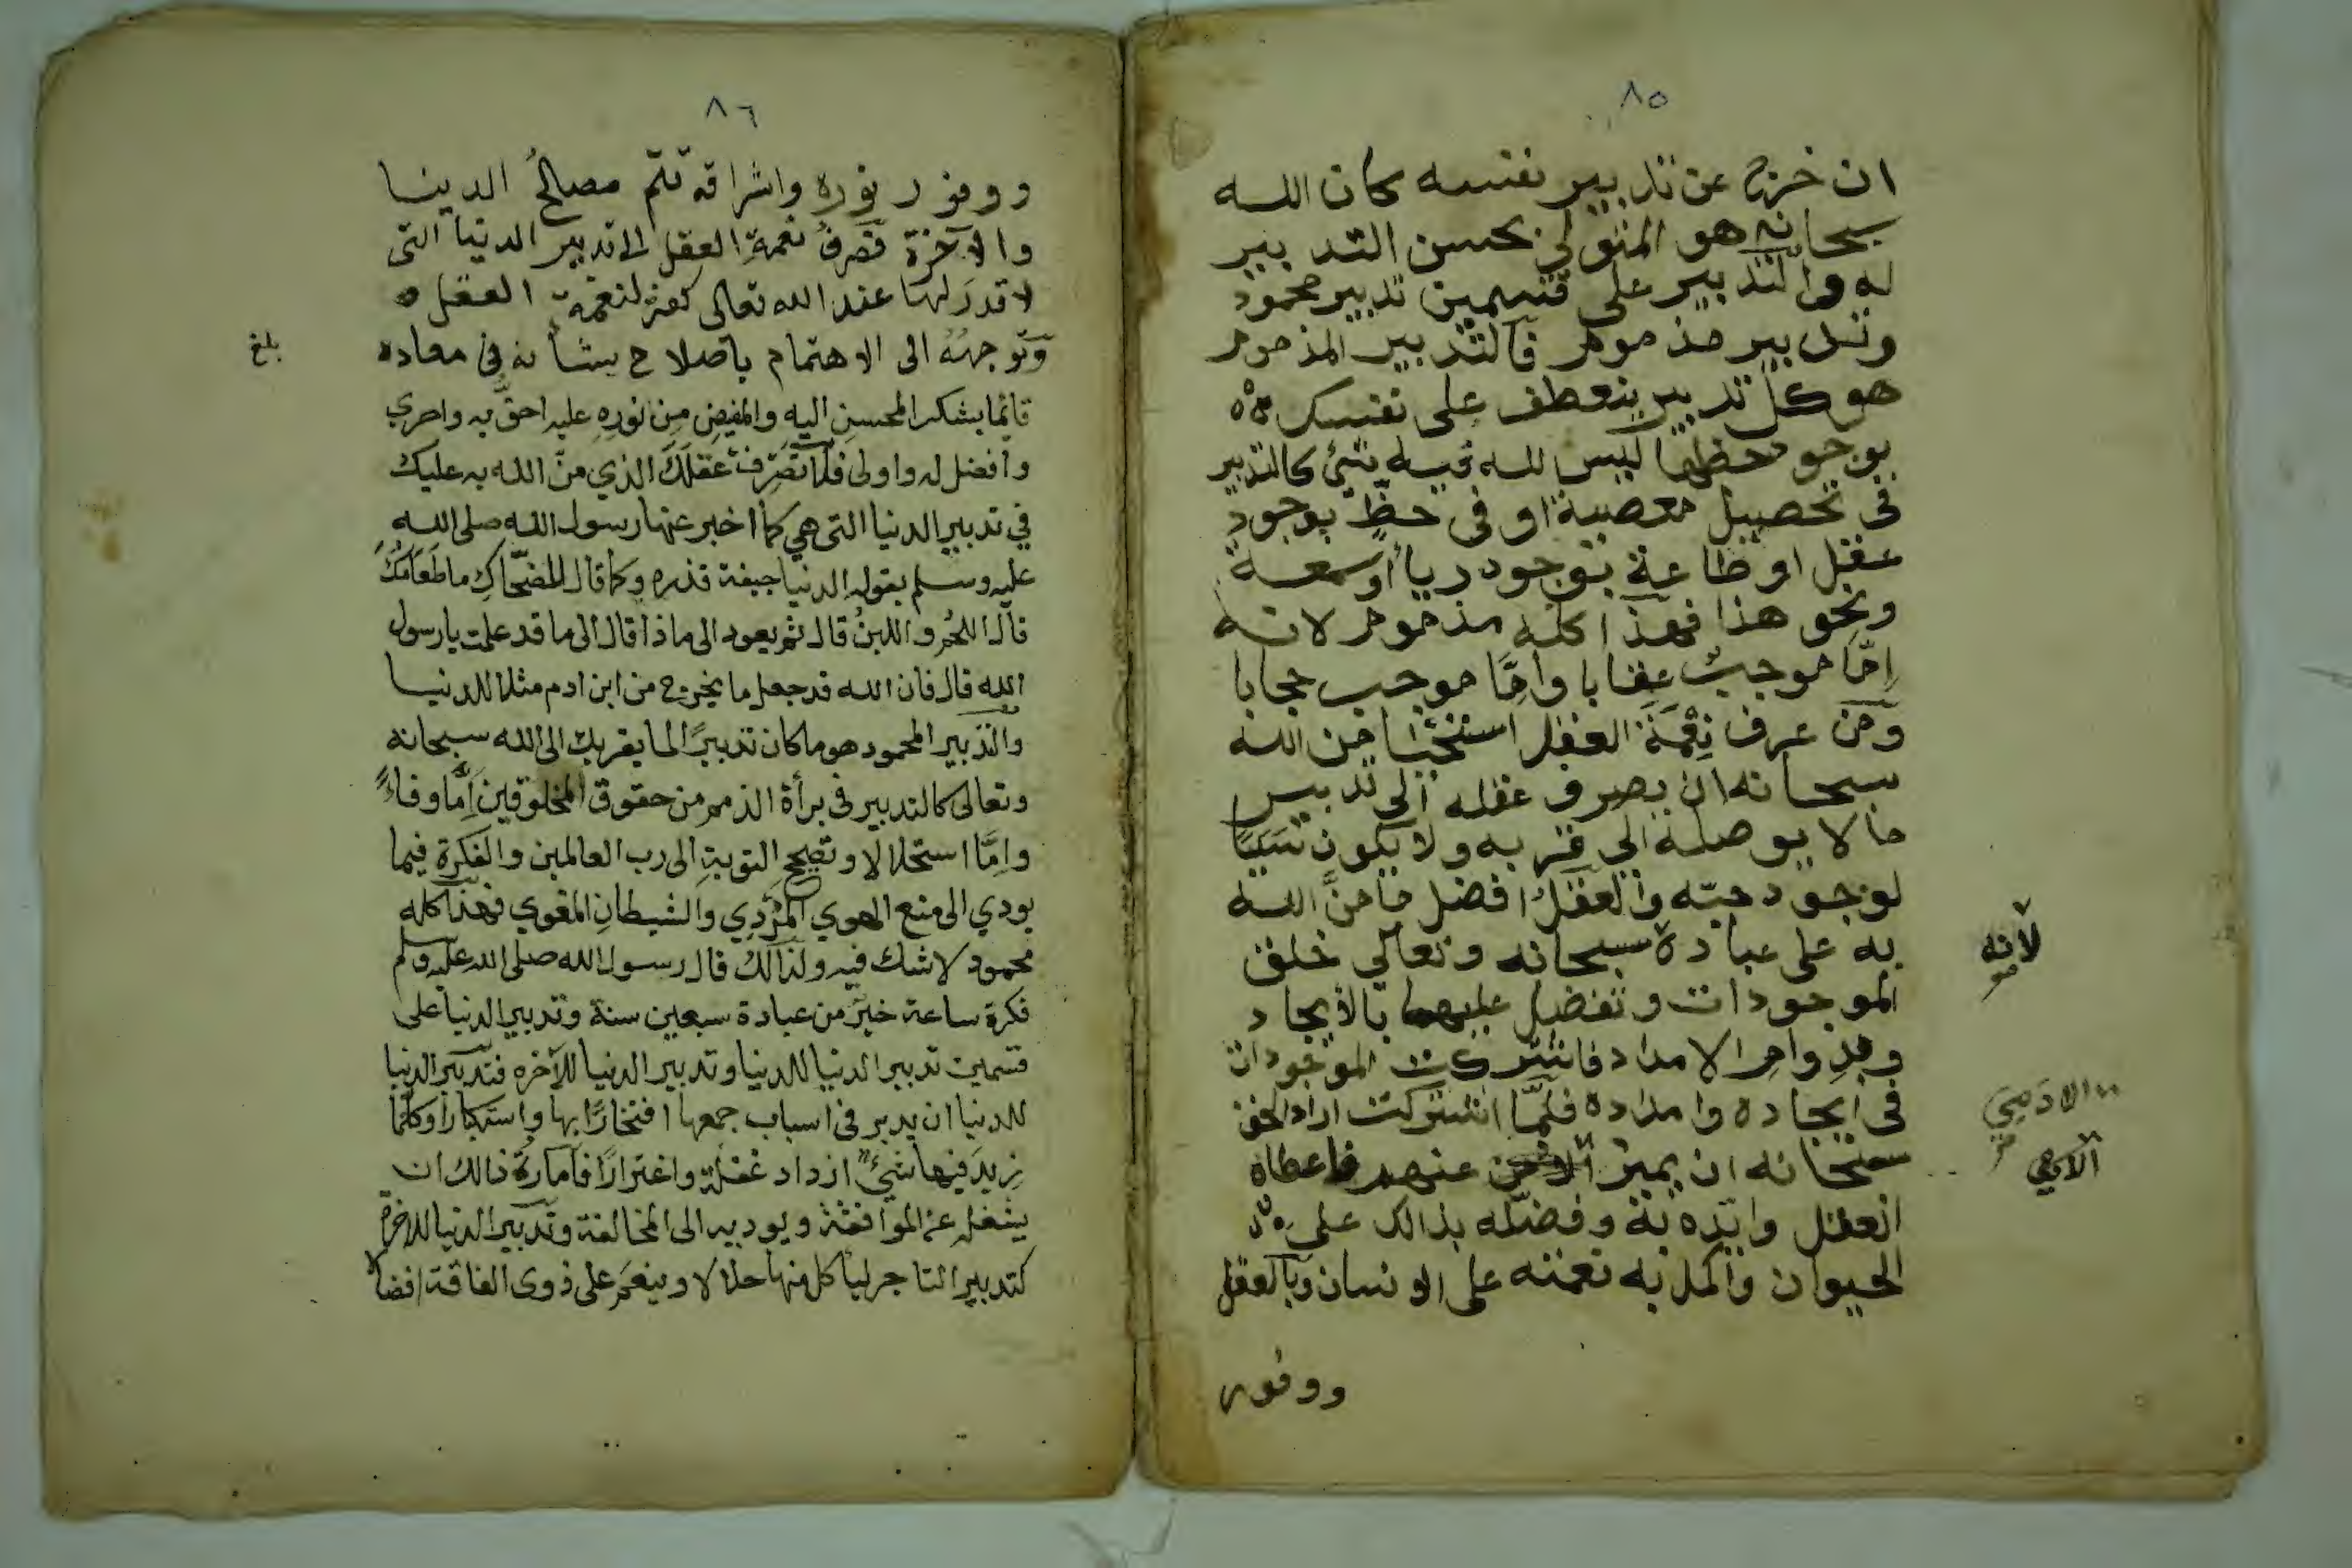 ٨٥
ان خرج عن تدبير نفسه كان الله
سبحانه هو المتولي بحسن التدبير
له والتدبير على قسمين تدبير محمود
وتدبير مذموم فالتدبير المذموم
هو كل تدبير ينعطف على نفسك
بوجود حظها ليس لله فيه شئ كالتدبير
في تحصيل معصية او في حظ بوجود
عقل او طاعة بوجود رياأ وسمعة
ونحو هذا فهذا كله مذموم لانه
اِمّا موجبٌ عقابا واِمَّا موجب حجابا
ومن عرف نِعْمَة العقل استحيا من الله
سبحانه ان يصرف عقله الى تدبير
ما لا يوصله الي قربه ولا يكون سَبَبًا
لوجود حبّه والعقلُ افضل ما منَّ الله
به على عباده سبحانه وتعالي خلق
لانه
الموجودات وتفضل عليها بالايجاد
وبدوام الامداد فاشتركت الموجودات
في ايجاده وامداده فلمّا اشتركت اراد الحق
الادَمِيَ
سبحانه ان يميز عنهم فاعطاه
الآدمي
العقل وايّده به وفضّله بذالك على
الحيوان واكمل به نعمته على الانسان وبالعقل
ووفور
٨٦
ووفور نوره واشراقه تتم مصالحُ الدينا
والآخرة فصَرفُ نعمةِ العقل الى تدبير الدنيا التى
لا قدرَ لها عند الله تعالى كفرٌ لنعمة العقل ه
وتوجهُهُ الى الاهتمام باصلاح بشأنه في معاده
بلغ
قائما بشكر المحسن اليه والمفيض مِن نُورِهِ عليه احقُّ به واحري
وافضل له واولى فلا تَصْرِفْ عَقلَكَ الذي منَّ الله به عليك
في تدبير الدنيا التى هي كما اخبر عنها رسول الله صلى الله
عليه وسلم بقوله الدنيا جيفة قذره وكما قال للضحّاكِ ما طَعَامُكَ
قال اللحُم واللبنُ قال ثم يعود الى ماذا قال الى ما قد علمت يا رسول
الله قال فان الله قد جعل ما يخرج من ابن ادم مثلا للدنيا
والتدبير المحمود هو ما كان تدبيرًا لما يقربك الى الله سبحانه
وتعالى كالتدبير في برأة الذمم من حقوق المخلوقين اِمَّا وفاءً
واِمَّا استحلالا وتصحيح التوبةِ الى رب العالمين والفكرة فيما
يودي الى منع الهوي المُرْدِي والشيطانِ المغوي فهذا كله
محمود لا شك فيه ولذالك قال رسول الله صلى الله عليه وسلم
فكرة ساعة خيرٌ من عبادة سبعين سنة وتدبير الدنيا على
قسمين تدبير الدنيا للدنيا وتدبير الدنيا للآخره فتدبير الدنيا
للدنيا ان يدبر في اسباب جمعها افتخارًا بها واستكبارا وكلّما
زِيدَ فيها شيءٌ ازداد غفلة واغترارًا فأمارة ذالك ان
يشغله عن الموافقة ويوديه الى المخالفة وتدبير الدنيا للاخرة
كتدبير التاجر ليأكل منها حلالا وينعمَ على ذوى الفاقة افضالا